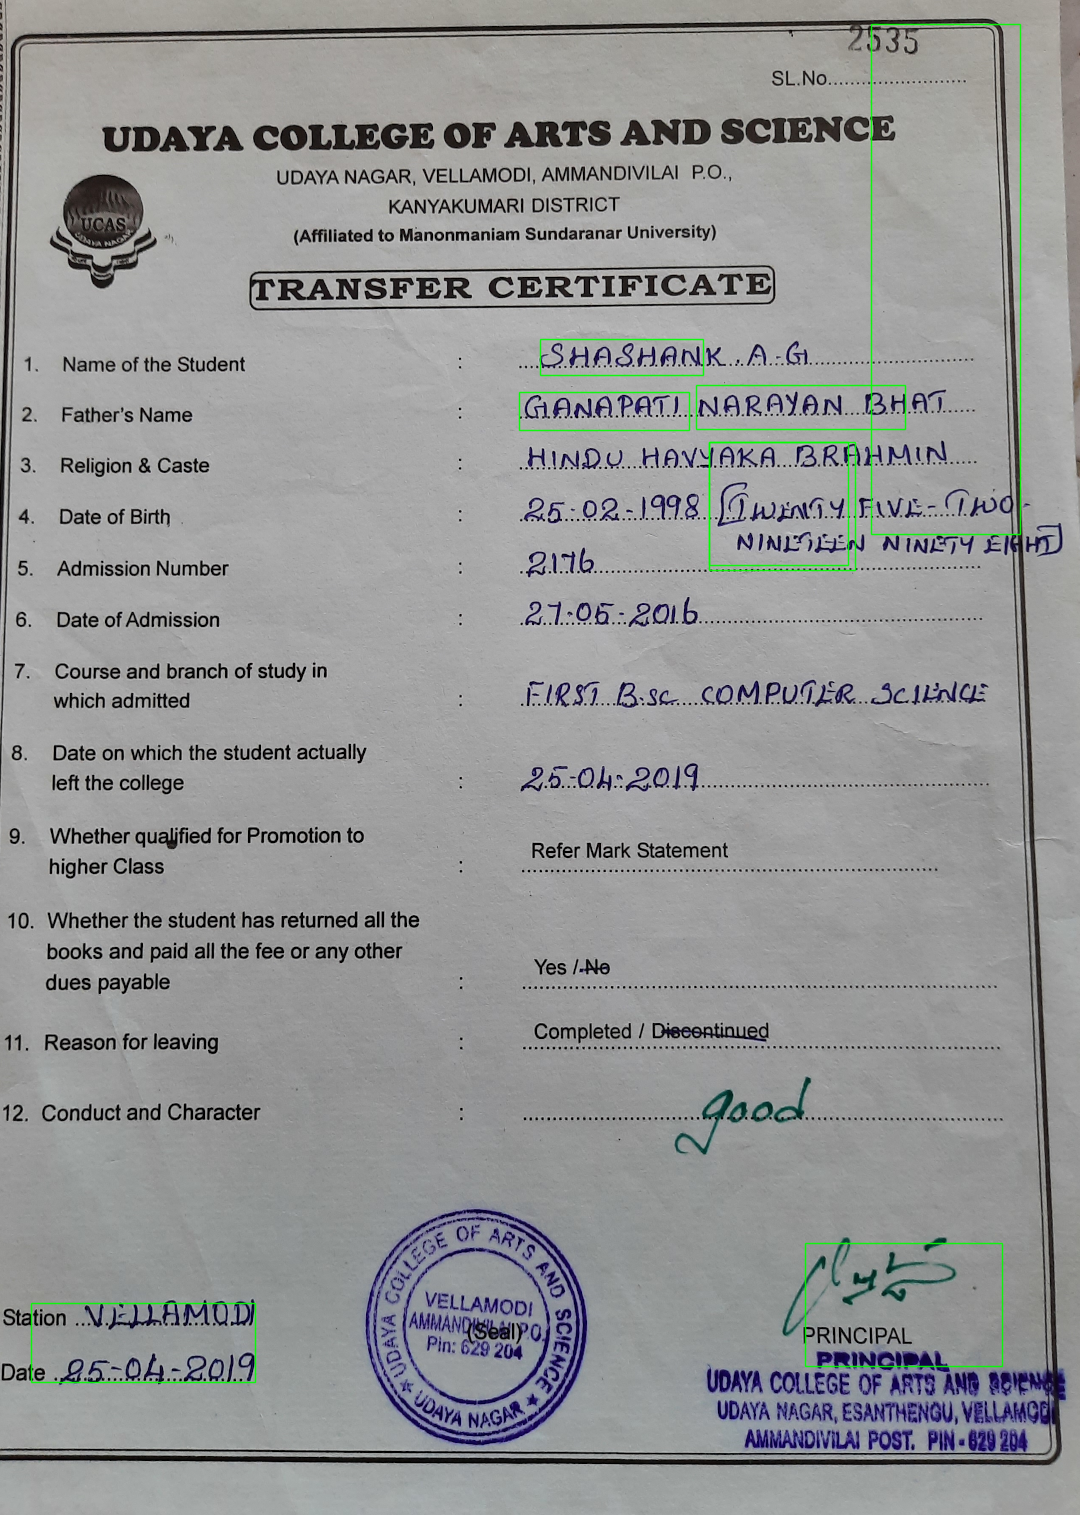 2535
SL.No........................
UDAYA COLLEGE OF ARTS AND SCIENCE
UDAYA NAGAR, VELLAMODI, AMMANDIVILAI P.O.,
KANYAKUMARI DISTRICT
(Affiliated to Manonmaniam Sundaranar University)
UCAS
UDAYA NAGAR
TRANSFER CERTIFICATE
1. Name of the Student : SHASHANK . A. G
2. Father's Name : GANAPATI NARAYAN BHAT
3. Religion & Caste : HINDU HAVYAKA BRAHMIN
4. Date of Birth : 25-02-1998 [TWENTY FIVE-TWO-
NINETEEN NINETY EIGHT]
5. Admission Number : 2176
6. Date of Admission : 27-05-2016
7. Course and branch of study in
which admitted : FIRST B.sc COMPUTER SCIENCE
8. Date on which the student actually
left the college : 25-04-2019
9. Whether qualified for Promotion to
higher Class : Refer Mark Statement
10. Whether the student has returned all the
books and paid all the fee or any other
dues payable : Yes / No
11. Reason for leaving : Completed / Discontinued
12. Conduct and Character : good
Station VELLAMODI
Date 25-04-2019
UDAYA COLLEGE OF ARTS AND SCIENCE
VELLAMODI
AMMANDIVILAI P.O.
Pin: 629 204
(Seal)
★ UDAYA NAGAR ★
PRINCIPAL
PRINCIPAL
UDAYA COLLEGE OF ARTS AND SCIENCE
UDAYA NAGAR, ESANTHENGU, VELLAMODI
AMMANDIVILAI POST. PIN - 629 204